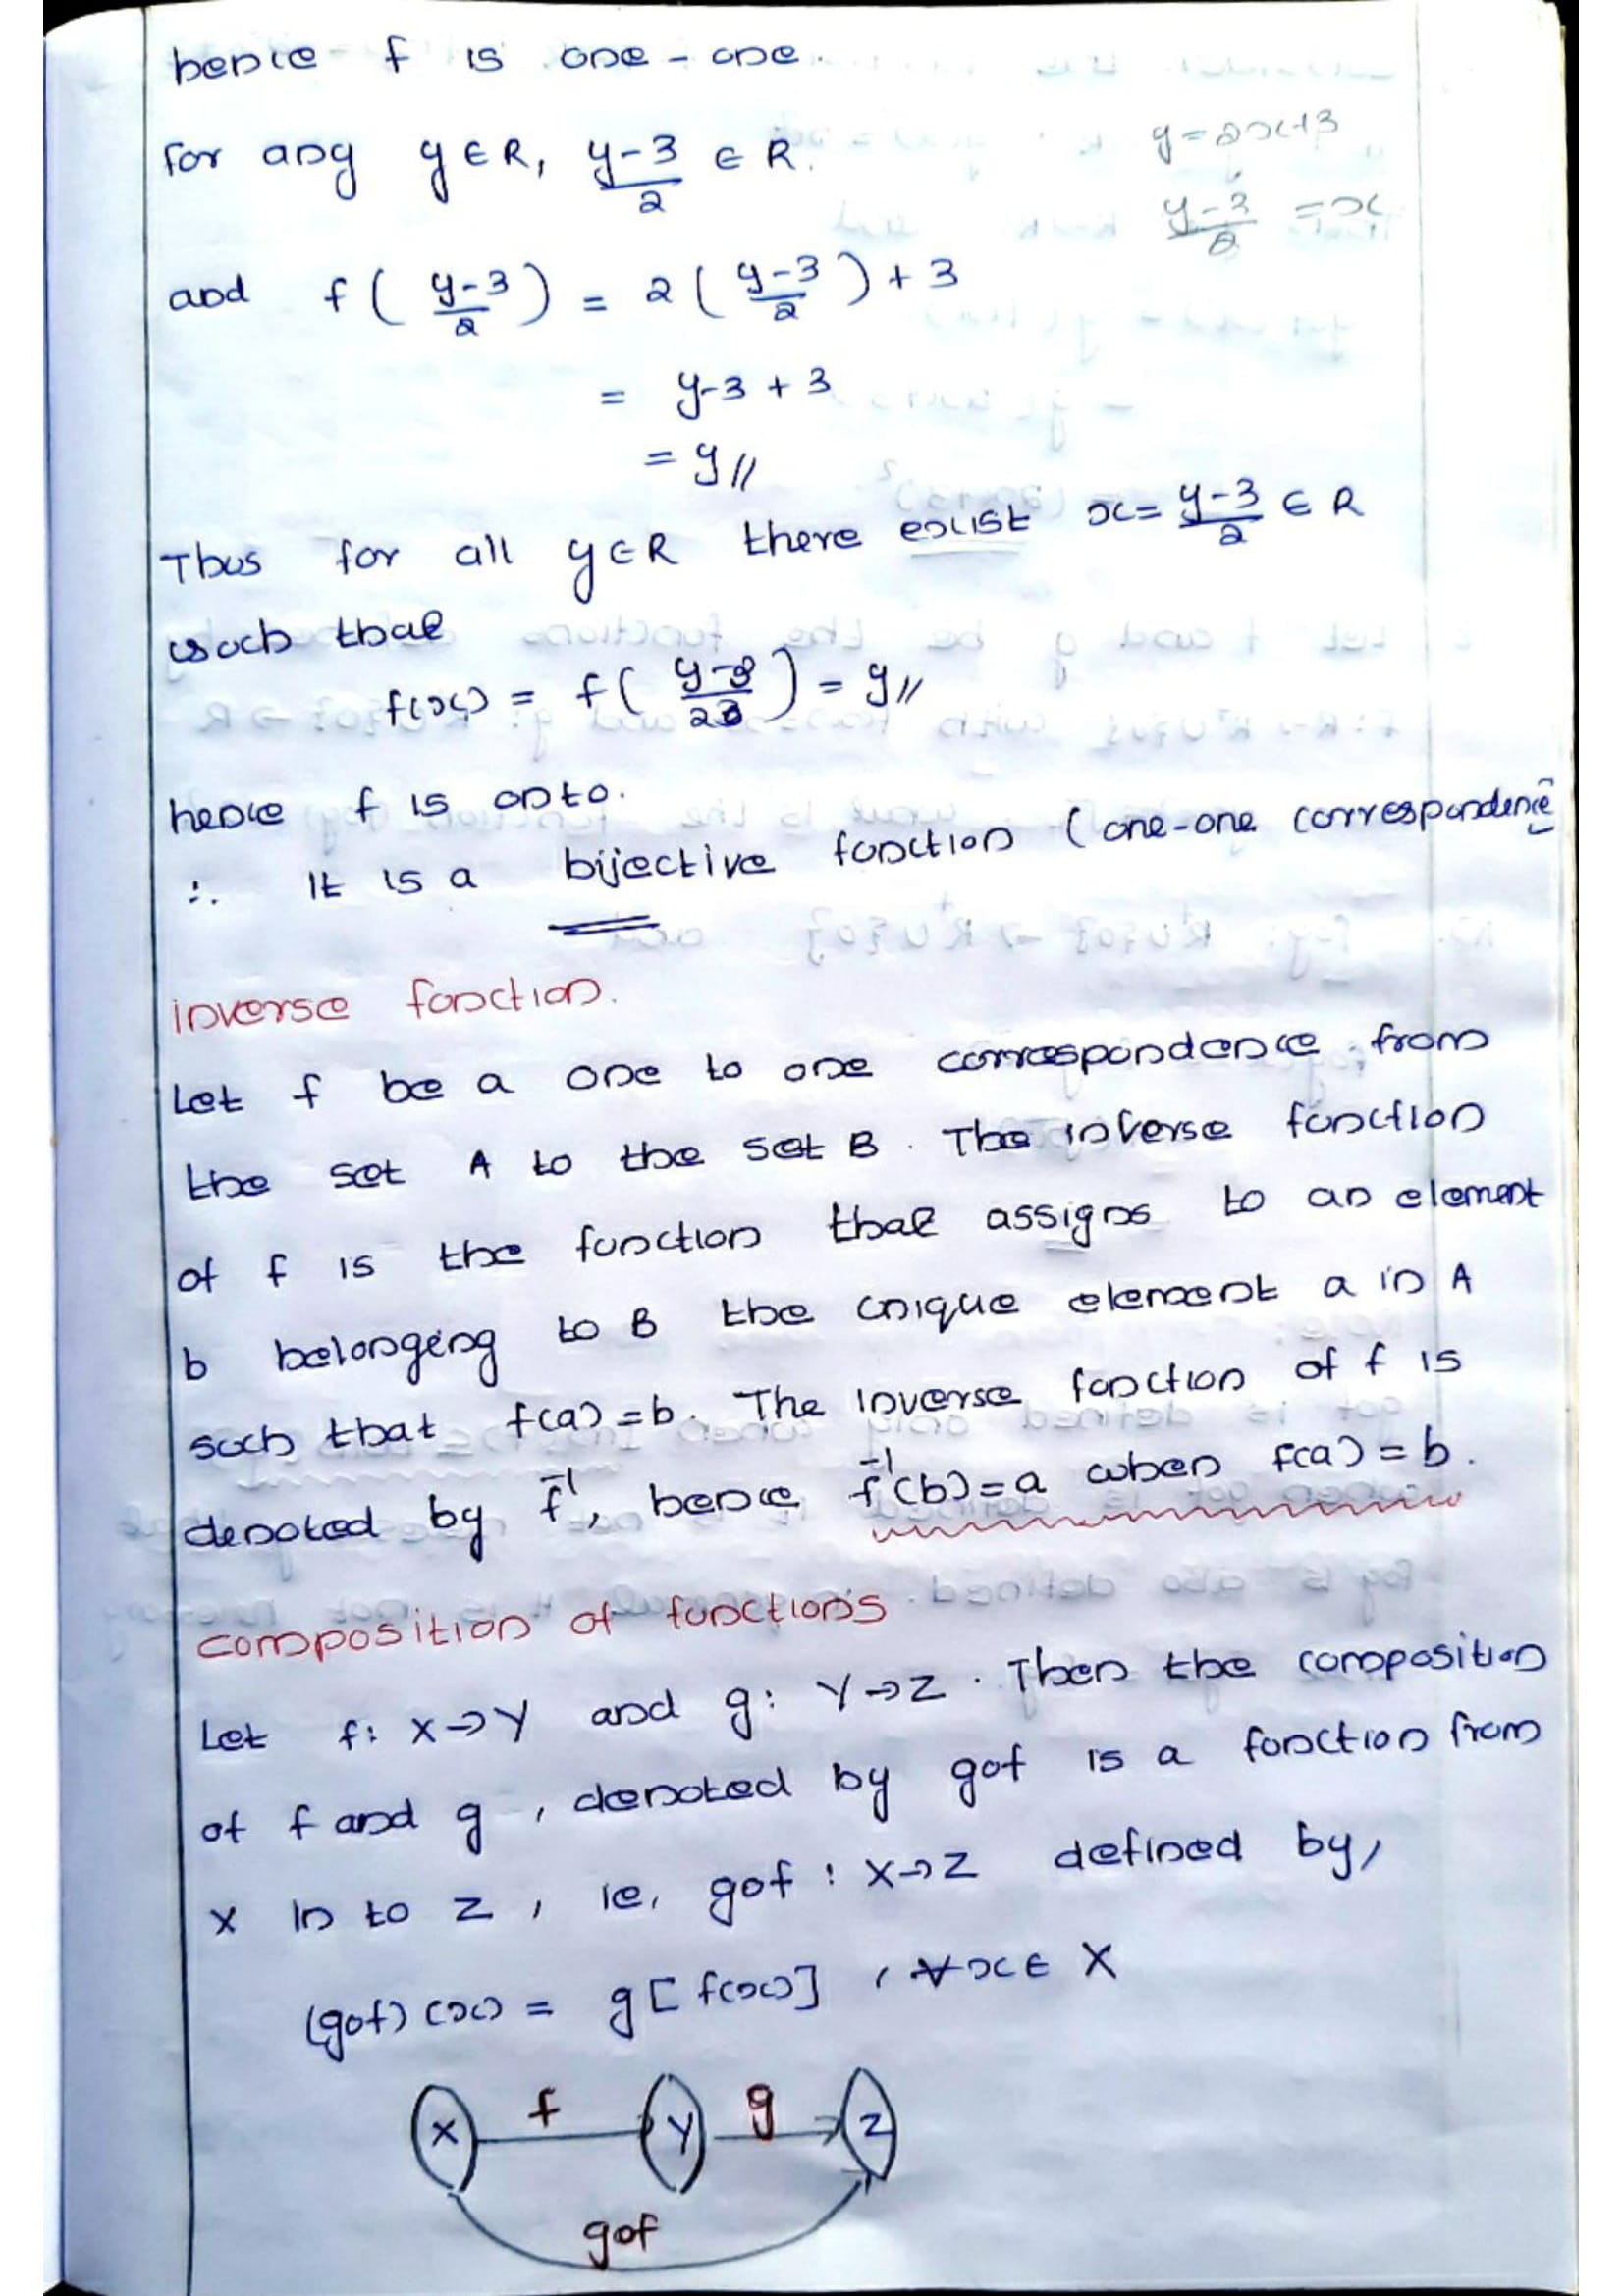 hence f is one - one.
for any y ∈ R, (y-3)/2 ∈ R.
y = 2x+3
(y-3)/2 = x
and f( (y-3)/2 ) = 2( (y-3)/2 ) + 3
= y-3 + 3
= y //
Thus for all y ∈ R there exist x = (y-3)/2 ∈ R
such that
f(x) = f( (y-3)/2 ) = y //
hence f is onto.
∴ It is a bijective function (one-one correspondence
inverse function.
Let f be a one to one correspondence from
the set A to the set B. The inverse function
of f is the function that assigns to an element
b belonging to B the unique element a in A
such that f(a) = b. The inverse function of f is
denoted by f⁻¹, hence f⁻¹(b) = a when f(a) = b.
composition of functions
Let f: X→Y and g: Y→Z. Then the composition
of f and g, denoted by gof is a function from
X in to Z, ie, gof : X→Z defined by,
(gof)(x) = g[f(x)], ∀ x ∈ X
X f Y g Z
gof